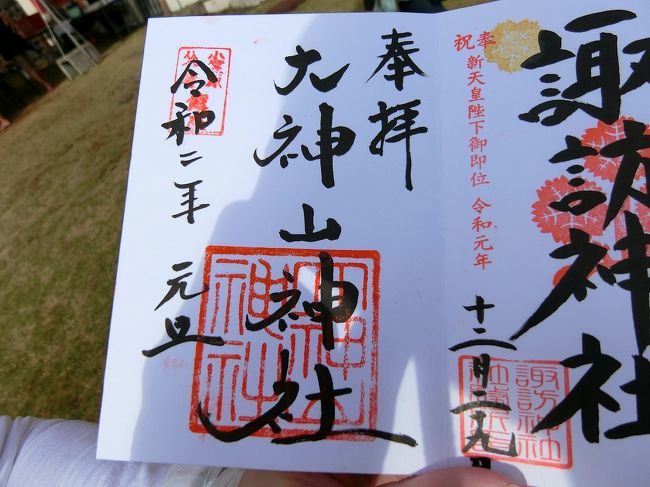 諏訪神社
奉祝 新天皇陛下御即位 令和元年
十二月二九
奉拝
大神山神社
令和二年 元旦
大神山神社